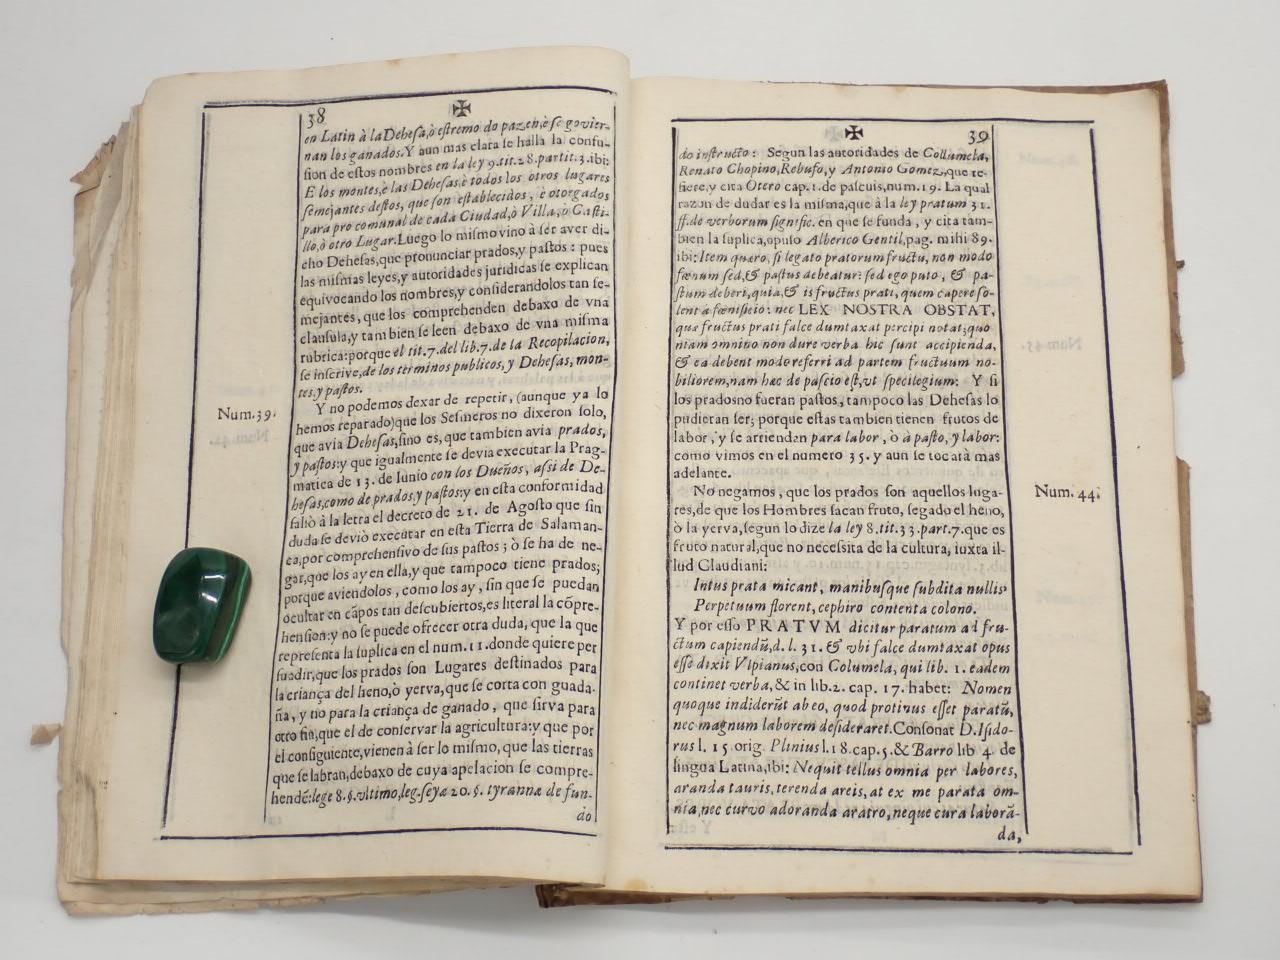 38
en Latin à la Dehesa, ò estremo do pazen, ò se govier-
nan los ganados. Y aun mas clara se halla la confu-
sion de estos nombres en la ley 9. tit. 28. partit. 3. ibi:
E los montes, è las Dehesas, è todos los otros lugares
semejantes destos, que son establecidos, è otorgados
para pro comunal de cada Ciudad, ò Villa, ò Casti-
llo, ò otro Lugar. Luego lo mismo vino à ser aver di-
cho Dehesas, que pronunciar prados, y pastos: pues
las mismas leyes, y autoridades juridicas se explican
equivocando los nombres, y considerandolos tan se-
mejantes, que los comprehenden debaxo de vna
clausula, y tambien se leen debaxo de vna misma
rubrica: porque el tit. 7. del lib. 7. de la Recopilacion,
se inscrive, de los terminos publicos, y Dehesas, mon-
tes, y pastos.
Num. 39.
Y no podemos dexar de repetir, (aunque ya lo
hemos reparado) que los Sesmeros no dixeron solo,
que avia Dehesas, sino es, que tambien avia prados,
y pastos: y que igualmente se devia executar la Prag-
matica de 13. de Iunio con los Dueños, assi de De-
hesas, como de prados, y pastos: y en esta conformidad
saliò à la letra el decreto de 21. de Agosto que sin
duda se deviò executar en esta Tierra de Salaman-
ca, por comprehensivo de sus pastos; ò se ha de ne-
gar, que los ay en ella, y que tampoco tiene prados;
porque aviendolos, como los ay, sin que se puedan
ocultar en cãpos tan descubiertos, es literal la cõpre-
hension: y no se puede ofrecer otra duda, que la que
representa la suplica en el num. 11. donde quiere per
suadir, que los prados son Lugares destinados para
la criança del heno, ò yerva, que se corta con guada-
ña, y no para la criança de ganado, que sirva para
otro fin, que el de conservar la agricultura: y que por
el consiguiente, vienen à ser lo mismo, que las tierras
que se labran, debaxo de cuya apelacion se compre-
hendẽ: lege 8. §. vltimo, leg. seyæ 20. §. tyrannæ de fun-
do
39
do instructo: Segun las autoridades de Collumela,
Renato Chopino, Rebufo, y Antonio Gomez, que re-
fiere, y cita Otero cap. 1. de pascuis, num. 19. La qual
razon de dudar es la misma, que à la ley pratum 31.
ff. de verborum signific. en que se funda, y cita tam-
bien la suplica, opuso Alberico Gentil, pag. mihi 89.
ibi: Item quæro, si legato pratorum fructu, non modo
fœnum sed, & pastus debeatur: sed ego puto, & pa-
stum deberi, quia, & is fructus prati, quem capere so-
lent à fœnisicio: nec LEX NOSTRA OBSTAT,
quæ fructus prati falce dumtaxat percipi notat; quo
niam omnino non dure verba hic sunt accipienda,
& ea debent modo referri ad partem fructuum no-
biliorem, nam hæc de pascio est, vt specilegium: Y si
los prados no fueran pastos, tampoco las Dehesas lo
pudieran ser; porque estas tambien tienen frutos de
labor, y se arriendan para labor, ò à pasto, y labor:
como vimos en el numero 35. y aun se tocatà mas
adelante.
Num. 44.
No negamos, que los prados son aquellos luga-
res, de que los Hombres sacan fruto, segado el heno,
ò la yerva, segun lo dize la ley 8. tit. 33. part. 7. que es
fruto natural, que no necessita de la cultura, iuxta il-
lud Claudiani:
Intus prata micant, manibusque subdita nullis
Perpetuum florent, cephiro contenta colono.
Y por esso PRATVM dicitur paratum ad fru-
ctum capiendũ, d. l. 31. & vbi falce dumtaxat opus
esse dixit Vlpianus, con Columela, qui lib. 1. eadem
continet verba, & in lib. 2. cap. 17. habet: Nomen
quoque indiderũt ab eo, quod protinus esset paratũ,
nec magnum laborem desideraret. Consonat D. Isido-
rus l. 15 orig. Plinius l. 18. cap. 5. & Barro lib 4. de
lingua Latina, ibi: Nequit tellus omnia per labores,
aranda tauris, terenda areis, at ex me parata om-
nia, nec curvo adoranda aratro, neque cura laborã-
da,